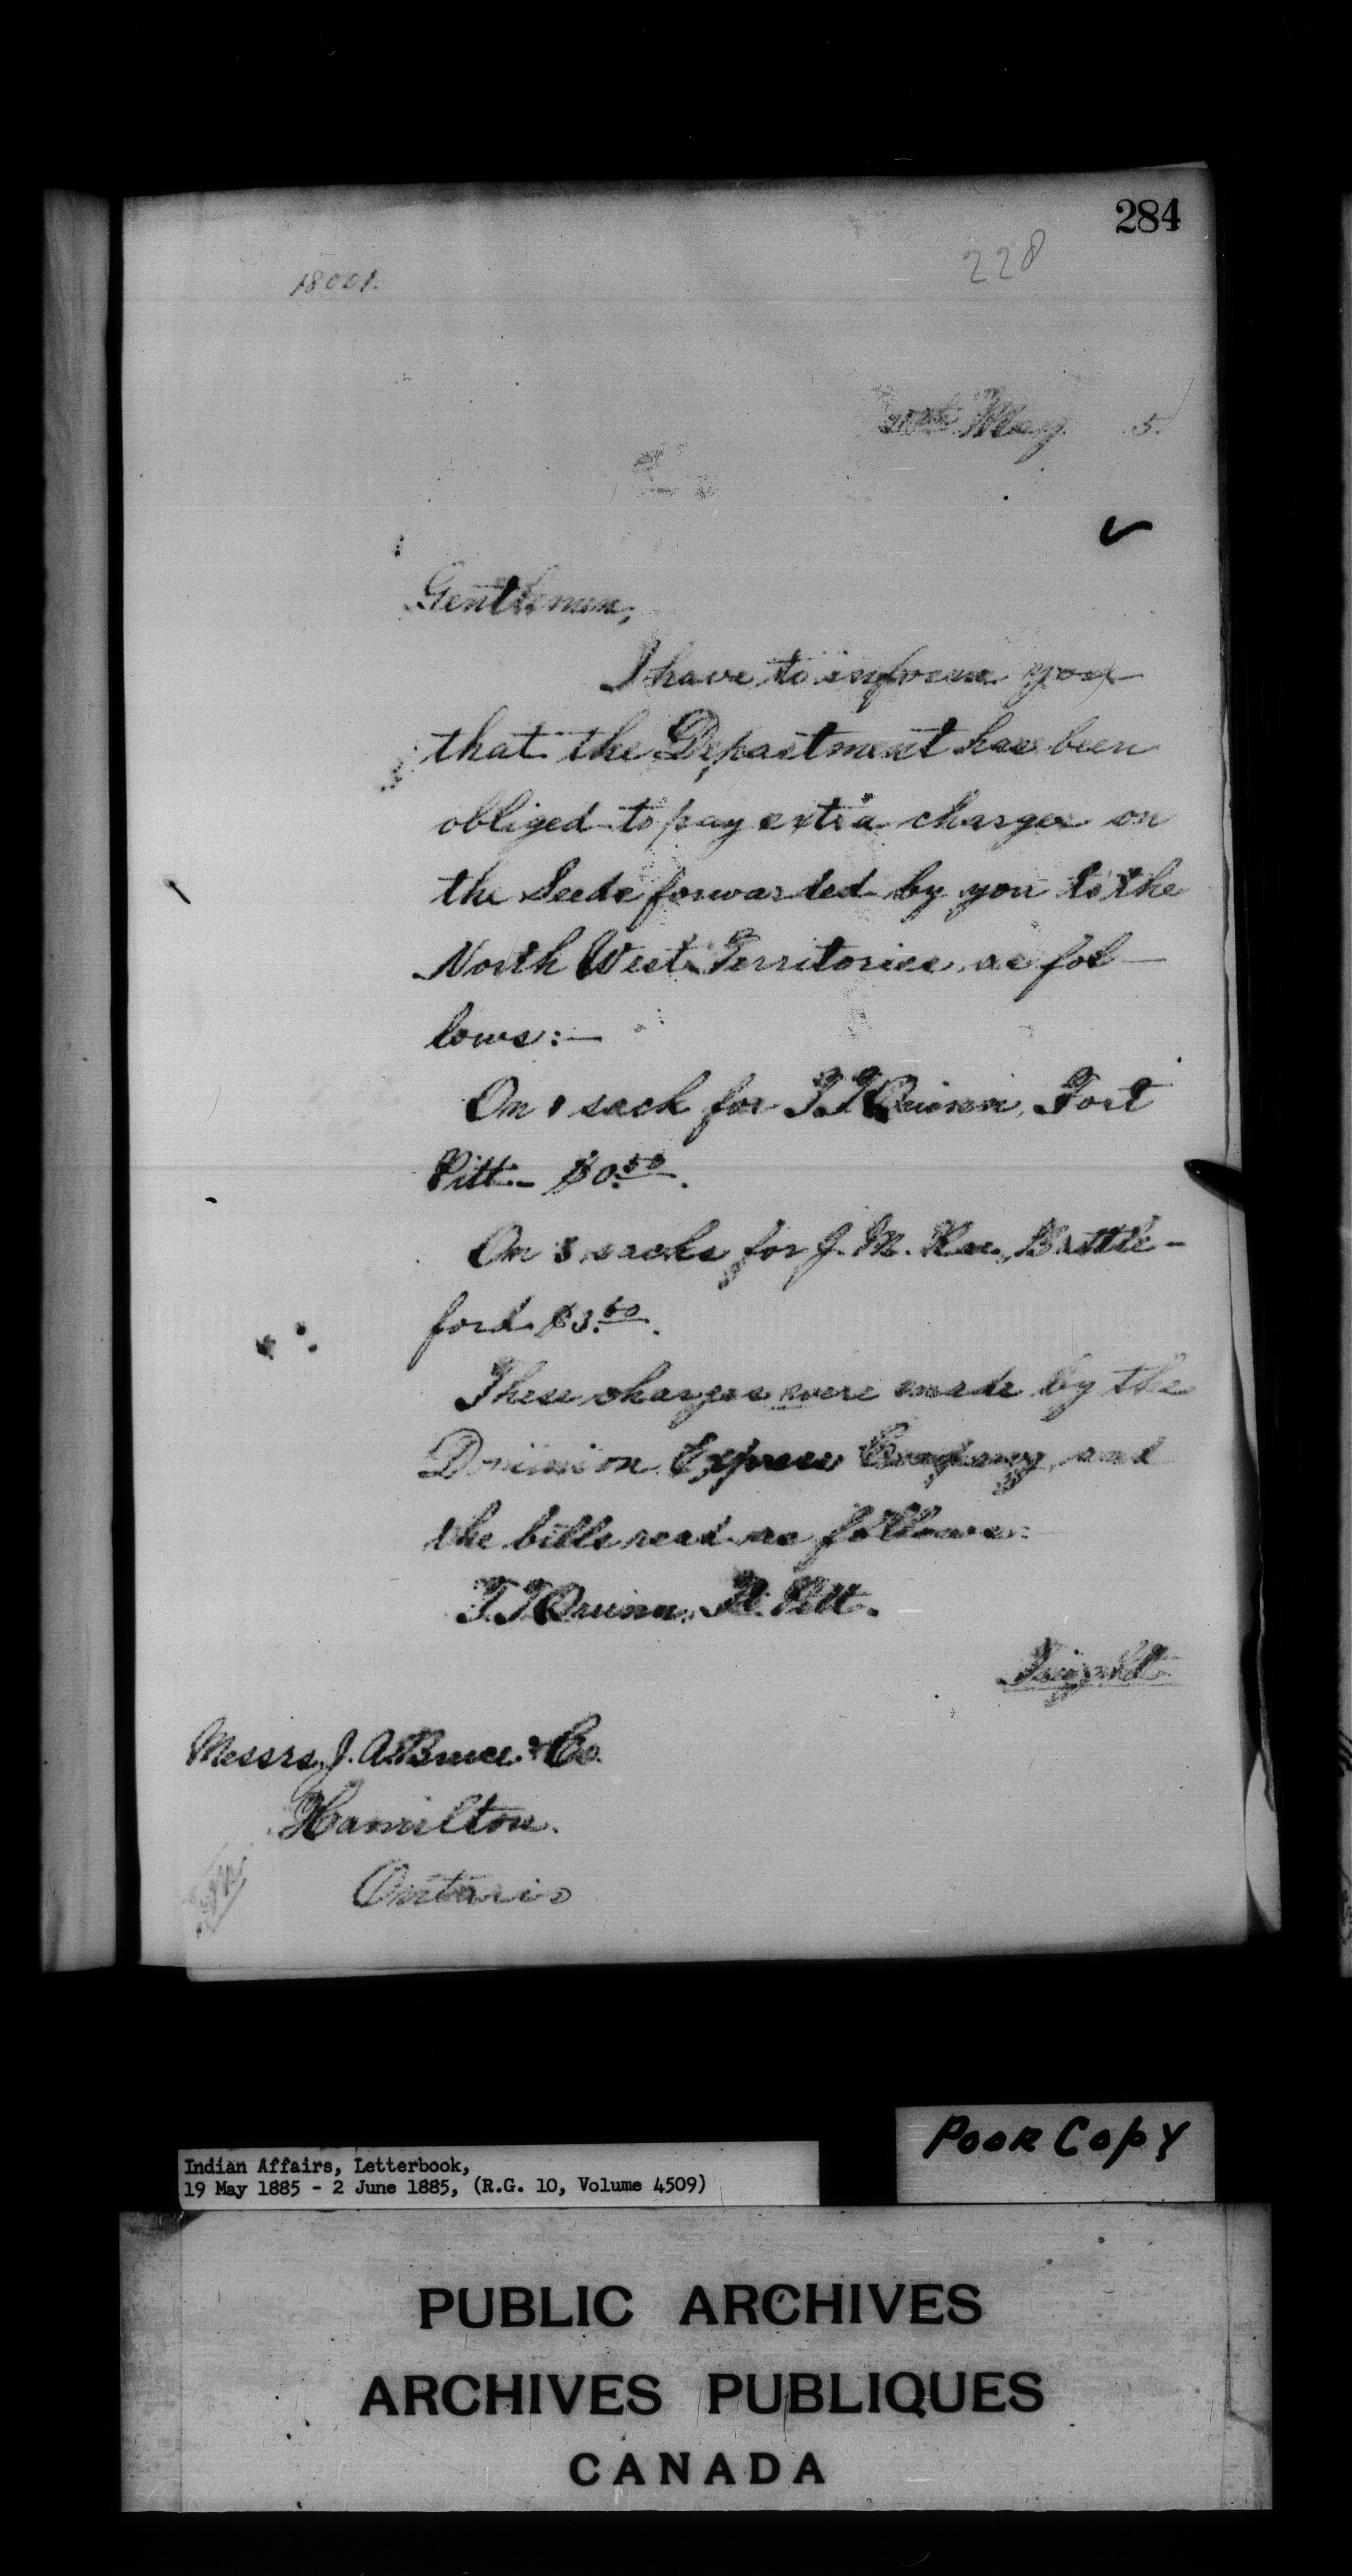 284
228
18001.
May 5.
Gentlemen,
I have to inform you
that the Department has been
obliged to pay extra charges on
the Seeds forwarded by you to the
North West Territories, as fol-
lows:-
On 1 sack for T. T. Quinn, Fort
Pitt - $0.50.
On 3 sacks for J. M. Rae, Battle-
ford $3.60.
These charges were made by the
Dominion Express Company, and
the bills read as follows:
T. T. Quinn, Ft. Pitt.
Messrs. J. A. Bruce & Co.
Hamilton.
Ontario
POOR COPY
Indian Affairs, Letterbook,
19 May 1885 - 2 June 1885, (R.G. 10, Volume 4509)
PUBLIC ARCHIVES
ARCHIVES PUBLIQUES
CANADA